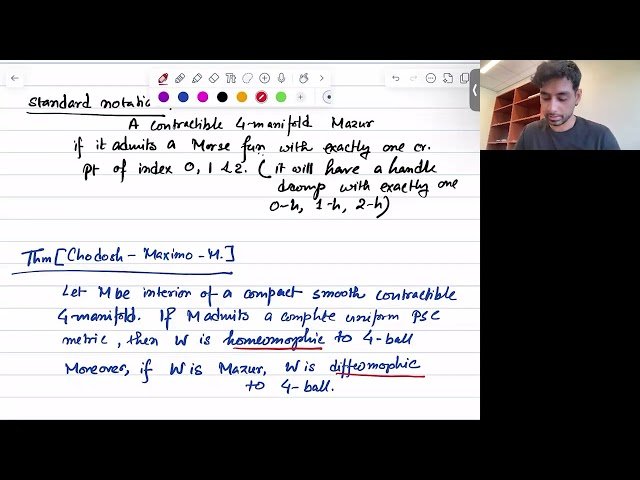 Standard notation.
A contractible 4-manifold Mazur
if it admits a Morse fun with exactly one cr.
pt of index 0, 1 & 2. ( it will have a handle
dcomp with exactly one
0-h, 1-h, 2-h)
Thm [Chodosh - Maximo - M.]
Let M be interior of a compact smooth contractible
4-manifold. If M admits a complte uniform PSC
metric, then W is homeomorphic to 4-ball
Moreover, if W is Mazur, W is diffeomophic
to 4-ball.